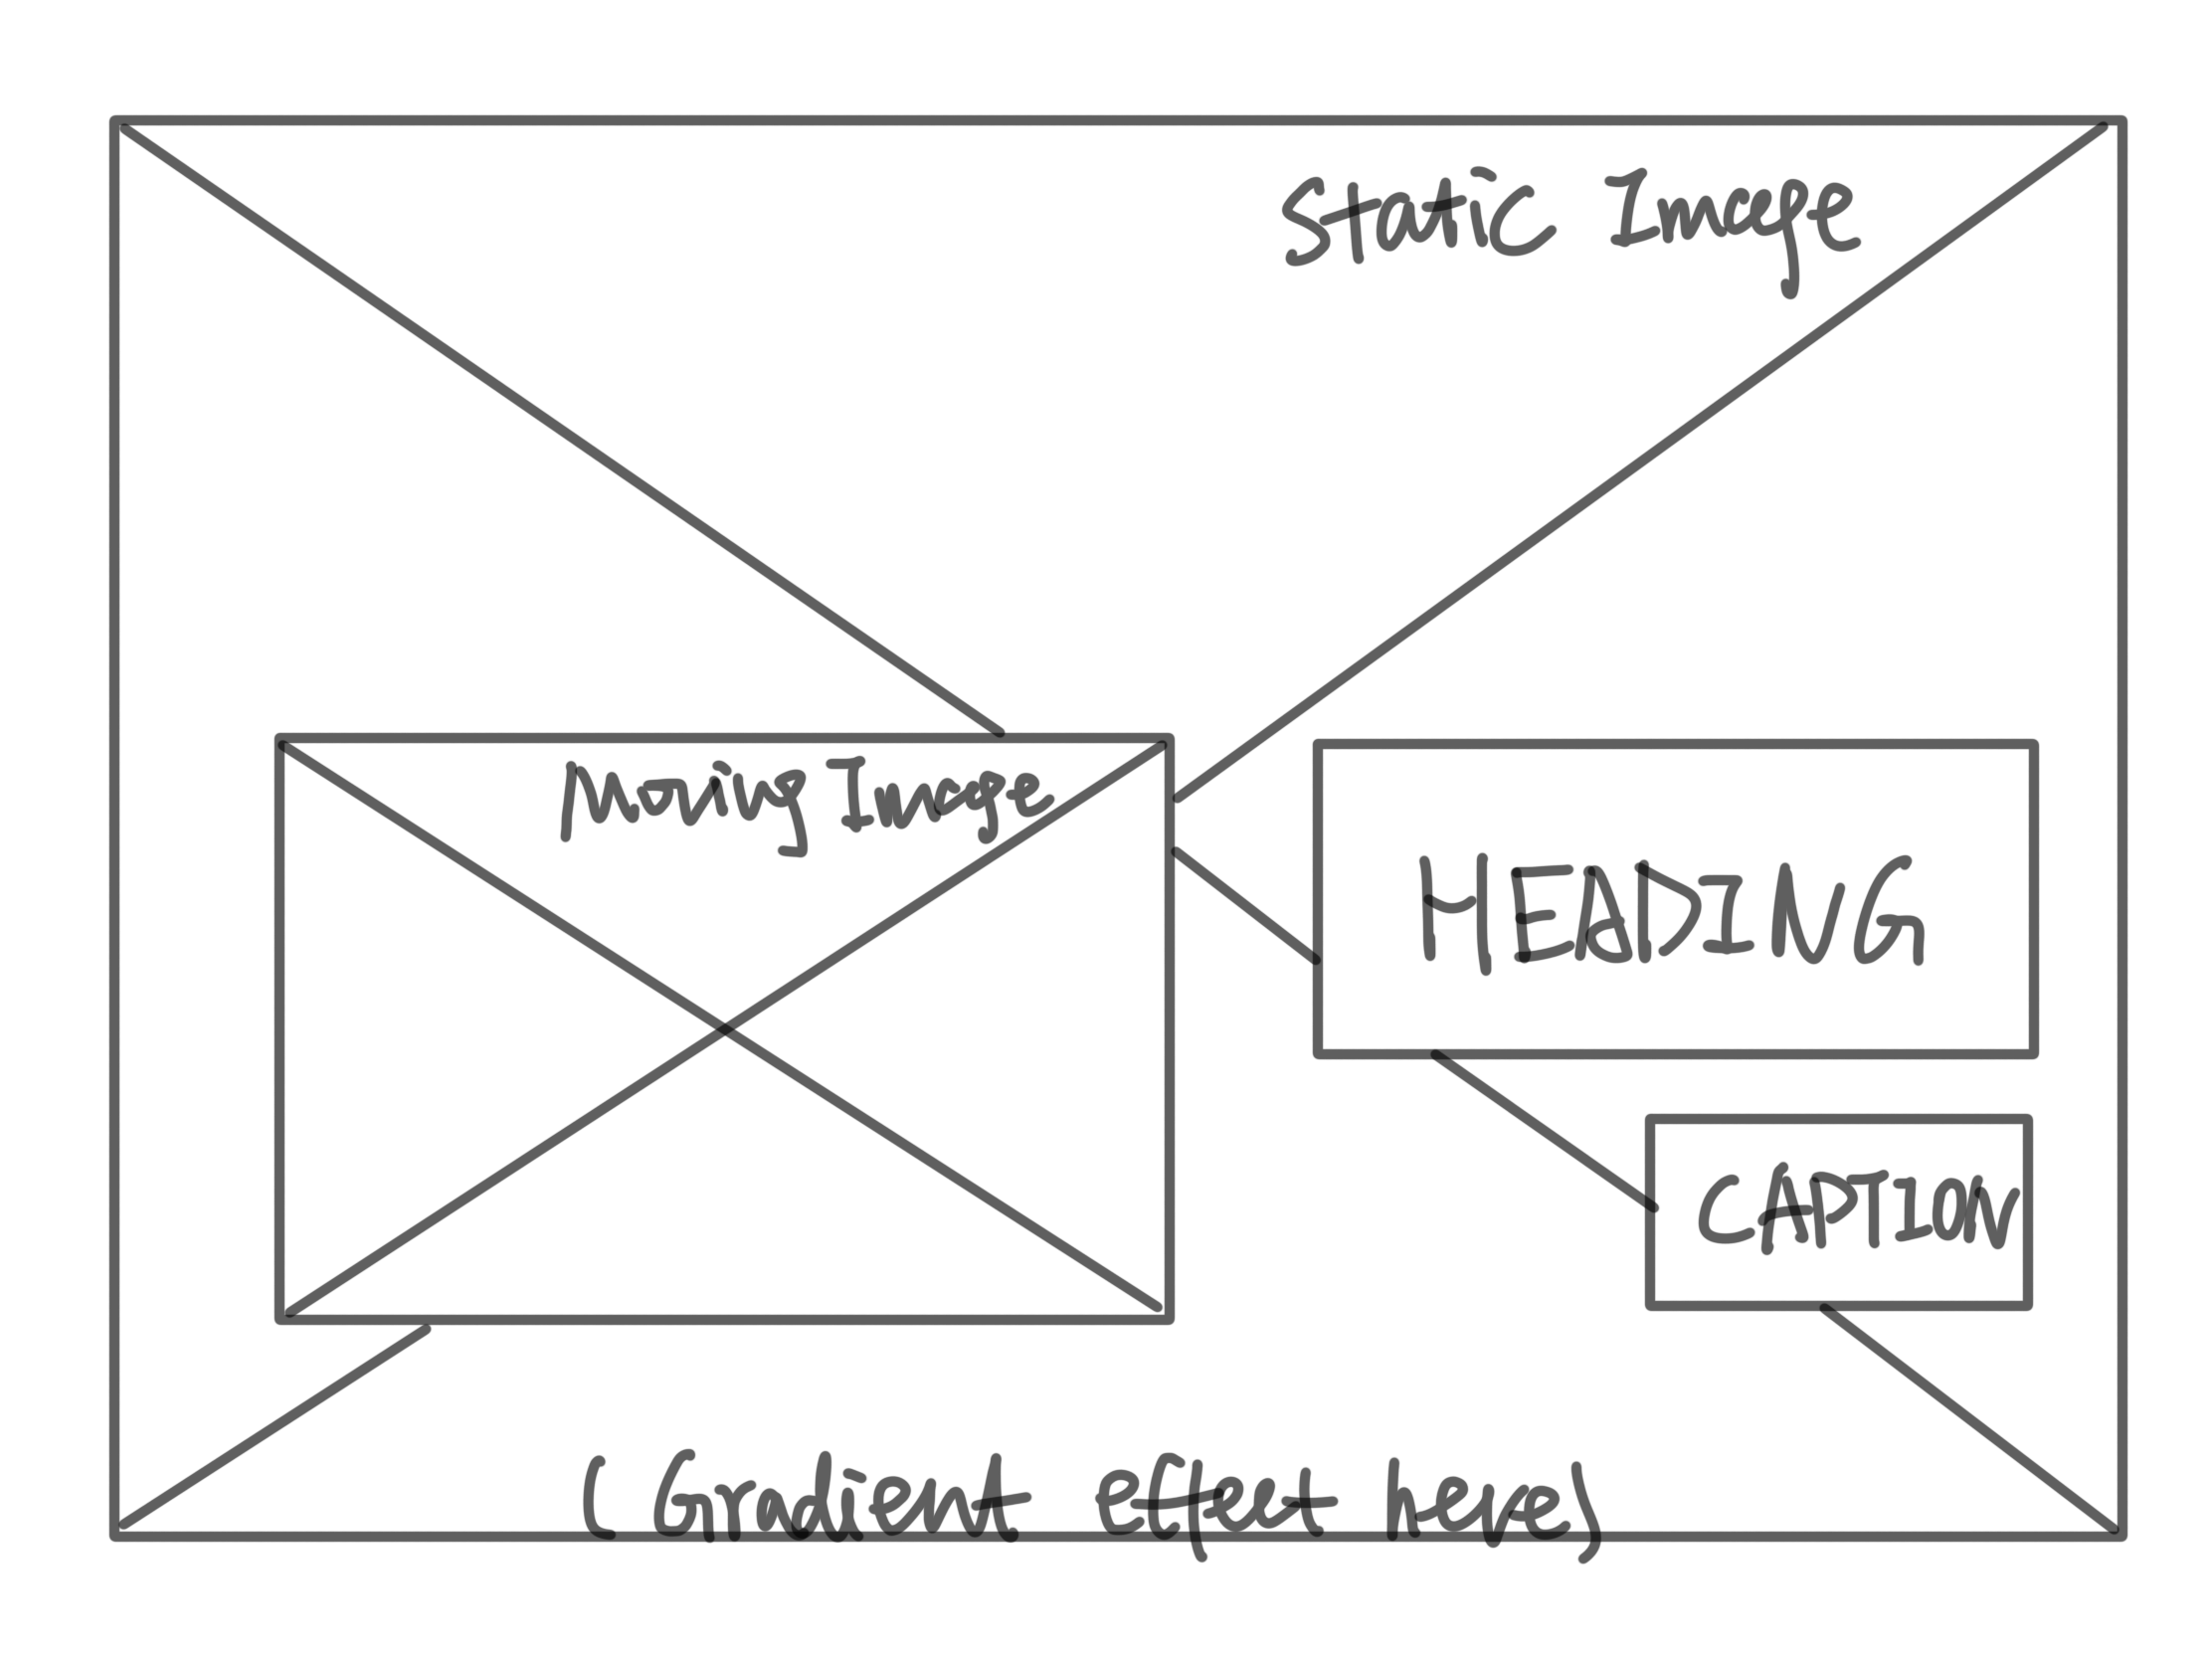 Static Image
Moving Image
HEADING
CAPTION
(Gradient effect here)